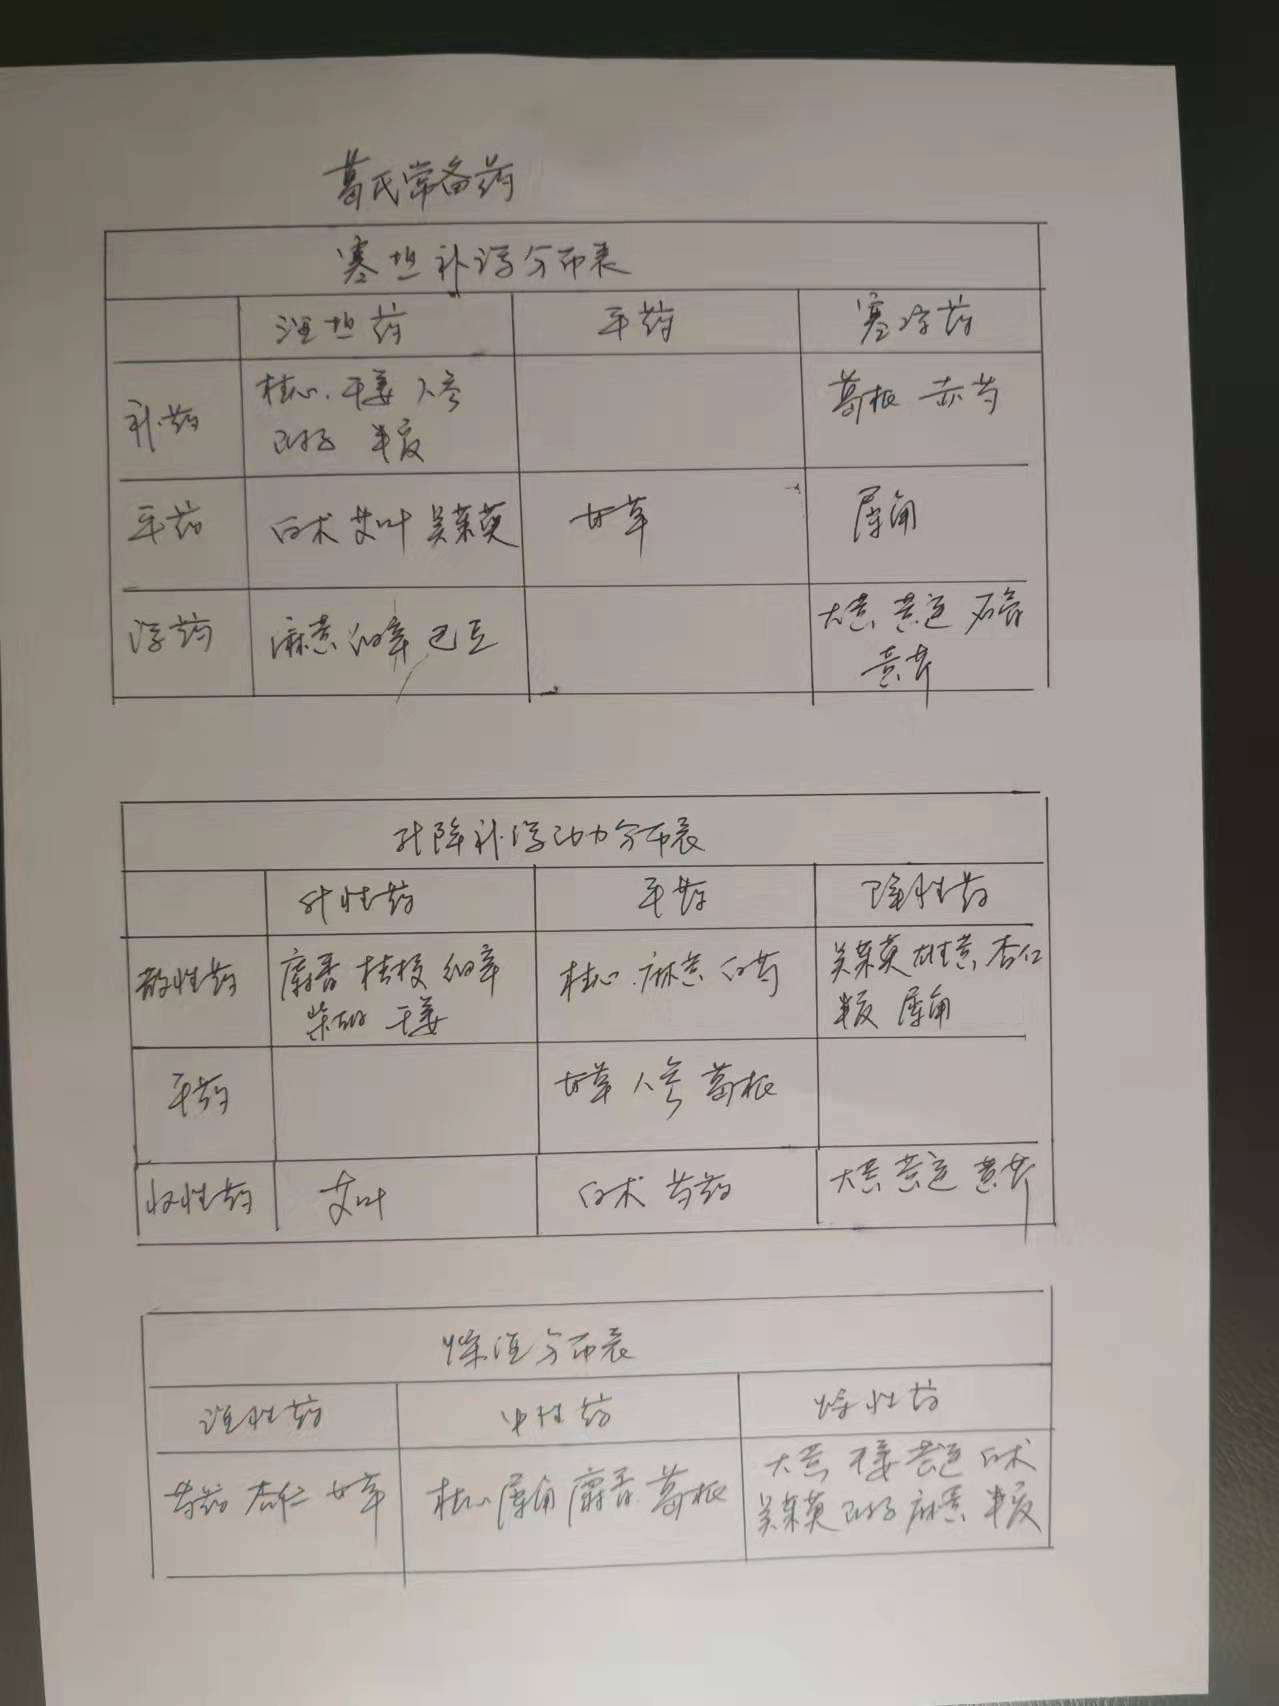 葛氏常备药
寒坦补泻分布表
温坦药 平药 寒凉药
补药 桂心.干姜 人参 葛根 赤芍
附子 半夏
平药 白术 艾叶 吴茱萸 甘草 犀角
泻药 麻黄 细辛 巴豆 大黄 黄连 石膏
黄芩
升降补泻动力分布表
升性药 平药 降性药
散性药 麝香 桔梗 细辛 桂心.麻黄 白芍 吴茱萸 雄黄 杏仁
柴胡 干姜 半夏 犀角
平药 甘草 人参 葛根
收性药 艾叶 白术 芍药 大黄 黄连 黄芩
燥湿分布表
湿性药 中性药 燥性药
芍药 杏仁 甘草 桂心 犀角 麝香 葛根 大黄 干姜 黄连 白术
吴茱萸 附子 麻黄 半夏